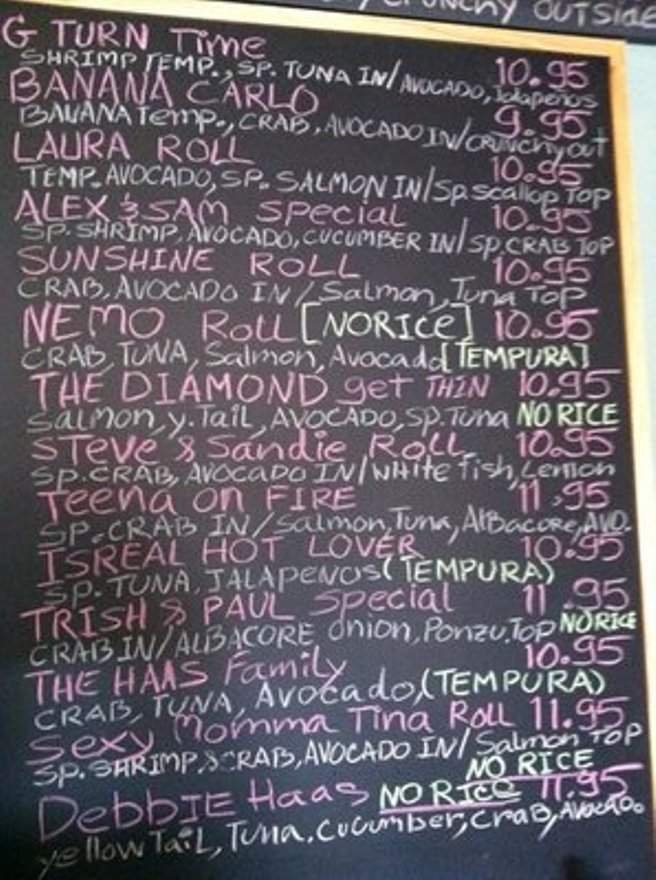 CRUNCHY OUTSIDE
G TURN Time 10.95
SHRIMP TEMP., SP. TUNA IN/AVOCADO, Jalapeños
BANANA CARLO 9.95
BAUANA Temp., CRAB, AVOCADO IN/CRUNCHY out
LAURA ROLL 10.95
TEMP. AVOCADO, SP. SALMON IN/Sp scallop TOP
ALEX & SAM special 10.95
SP. SHRIMP, AVOCADO, CUCUMBER IN/SP. CRAB TOP
SUNSHINE ROLL 10.95
CRAB, AVOCADO IN/Salmon, Tuna TOP
NEMO Roll [NORICe] 10.95
CRAB, TUNA, Salmon, Avocado [TEMPURA]
THE DIAMOND get THIN 10.95
Salmon, y.Tail, AVOCADO, SP.Tuna NO RICE
STeve & Sandie Roll 10.95
SP. CRAB, AVOCADO IN/White fish, Lemon
Teena on FIRE 11.95
SP. CRAB IN/Salmon, Tuna, AlBacore, AVO.
ISREAL HOT LOVER 10.95
SP. TUNA, JALAPENOS (TEMPURA)
TRISH & PAUL Special 11.95
CRAB IN/ALBACORE Onion, Ponzu, Top NO RICE
THE HAAS Family 10.95
CRAB, TUNA, Avocado, (TEMPURA)
Sexy Momma Tina Roll 11.95
SP. SHRIMP, & CRAB, AVOCADO IN/Salmon TOP
NO RICE
DebbIE Haas NO RICe 11.95
yellow TaiL, Tuna, Cucumber, CraB, Avocado